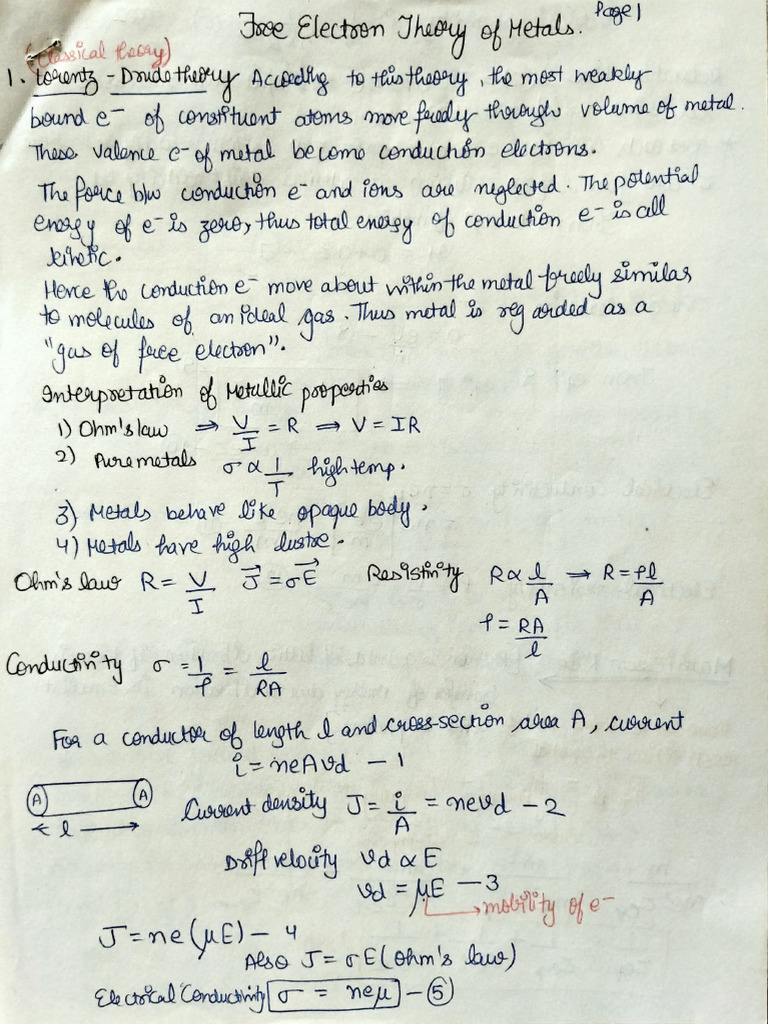 Free Electron Theory of Metals. Page 1
(Classical theory)
1. Lorentz - Drude theory According to this theory, the most weakly
bound e⁻ of constituent atoms move freely through volume of metal.
These valence e⁻ of metal become conduction electrons.
The force b/w conduction e⁻ and ions are neglected. The potential
energy of e⁻ is zero, thus total energy of conduction e⁻ is all
kinetic.
Hence the conduction e⁻ move about within the metal freely similar
to molecules of an ideal gas. Thus metal is regarded as a
"gas of free electron".
Interpretation of Metallic properties
1) Ohm's law ⇒ V/I = R ⇒ V = IR
2) Pure metals σ ∝ 1/T high temp.
3) Metals behave like opaque body.
4) Metals have high lustre.
Ohm's law R = V/I J⃗ = σE⃗ Resistivity R ∝ l/A ⇒ R = ρl/A
ρ = RA/l
Conductivity σ = 1/ρ = l/RA
For a conductor of length l and cross-section area A, current
i = neAvd - 1
A A
l
Current density J = i/A = nevd - 2
Drift velocity vd ∝ E
vd = μE - 3
→ mobility of e⁻
J = ne(μE) - 4
Also J = σE (Ohm's law)
Electrical Conductivity σ = neμ - ⑤